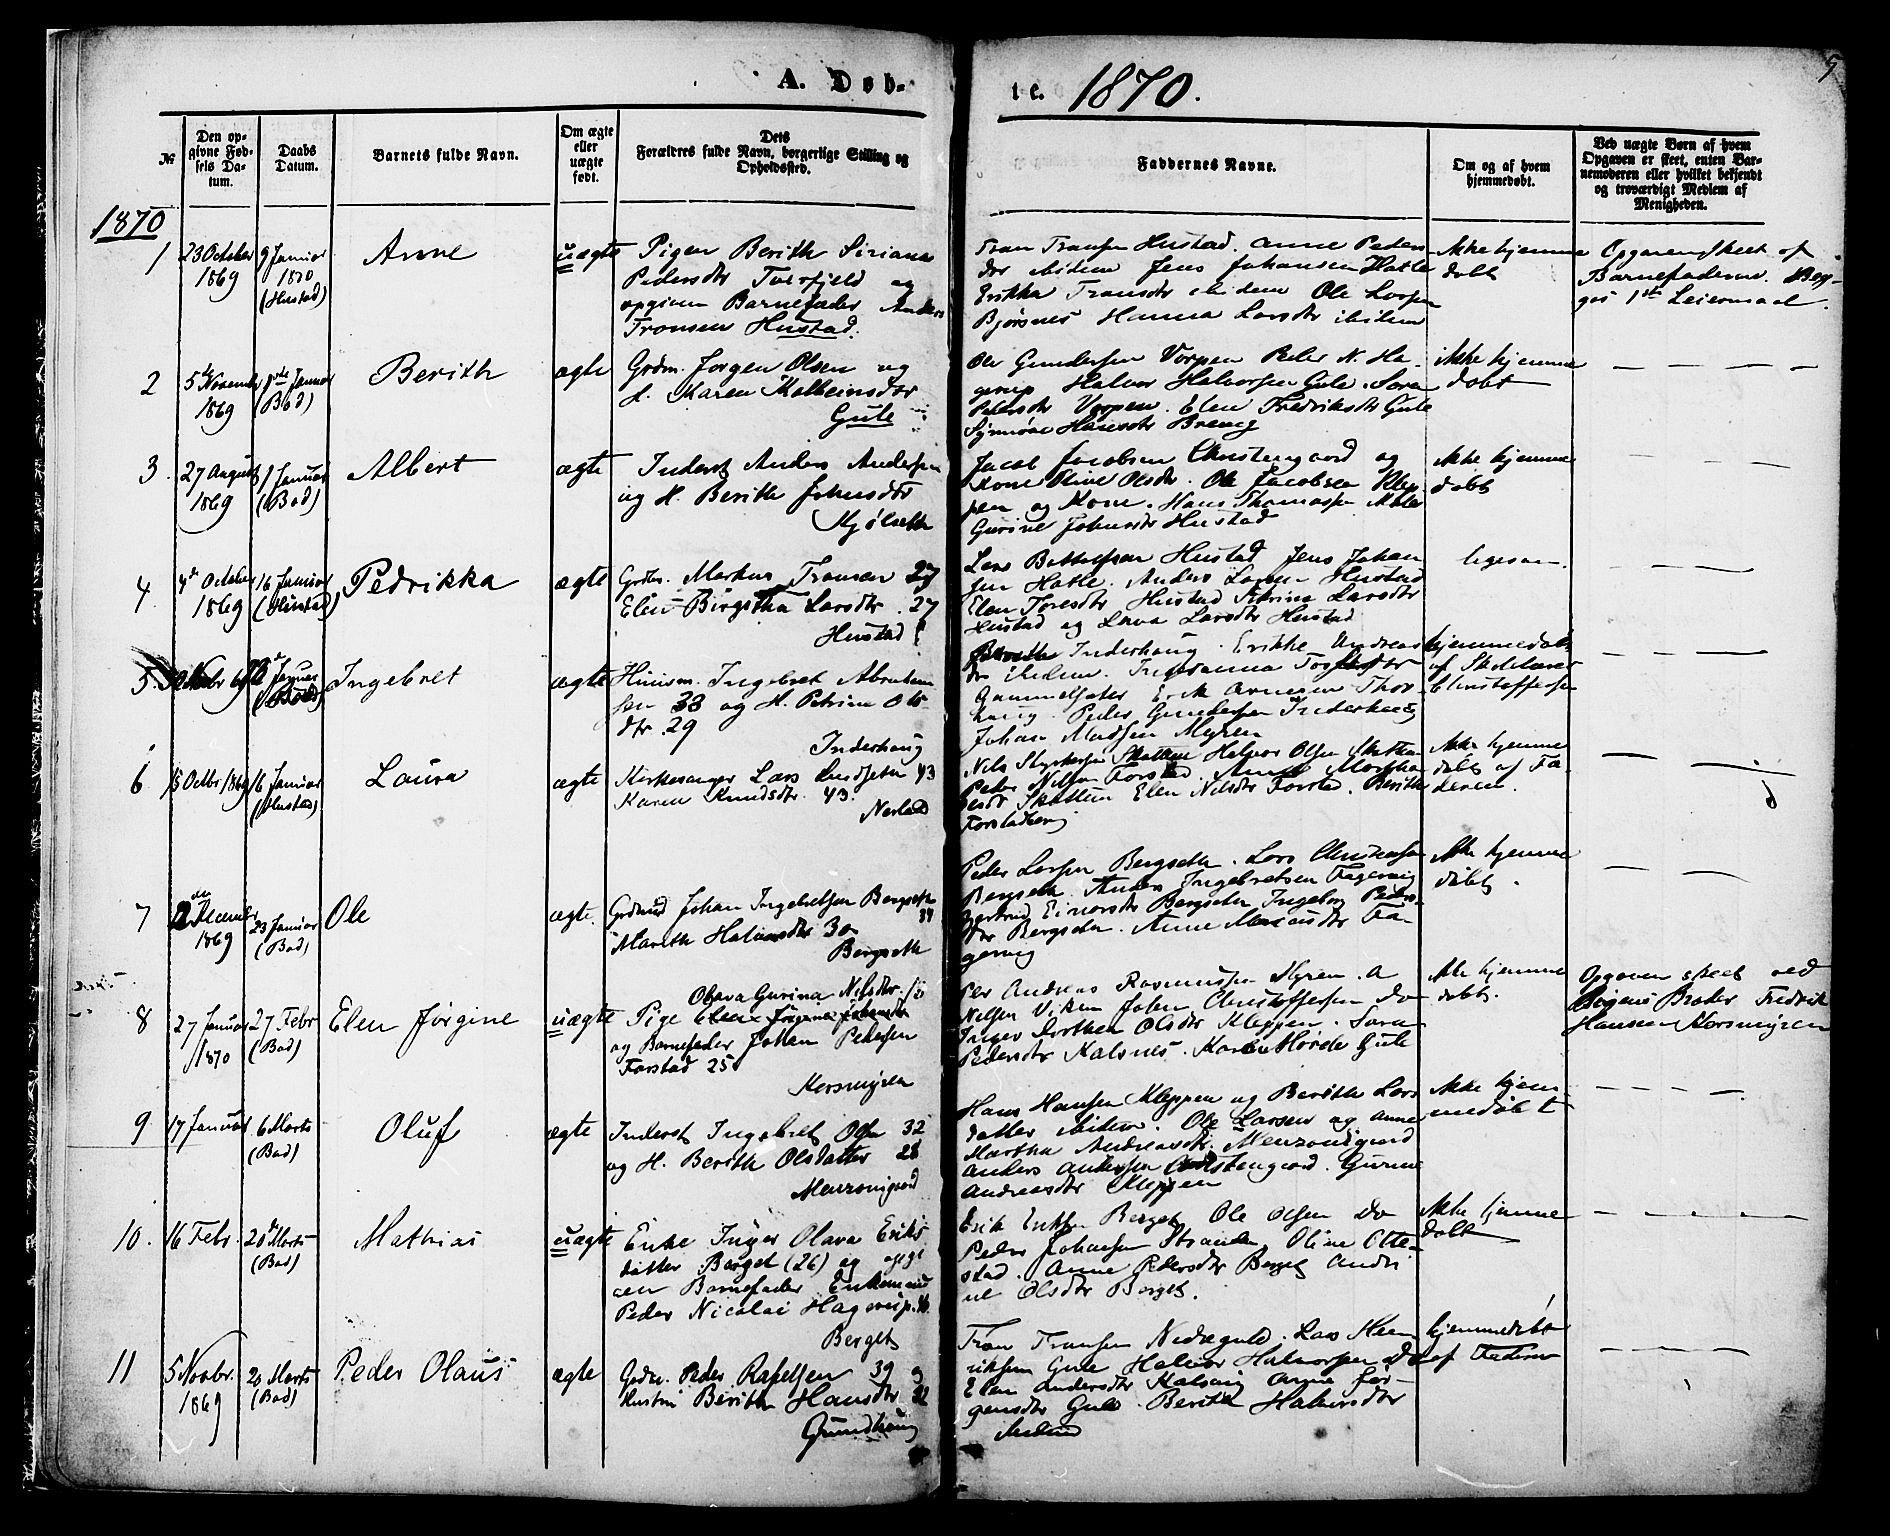 A. Døb-
te. 1870.
5
No
Den op-
givne Fød-
sels Da-
tum.
Daabs
Datum.
Barnets fulde Navn.
Om ægte
eller
uægte
født.
Dets
Forældres fulde Navn, borgerlige Stilling og
Opholdssted.
Faddernes Navne.
Om og af hvem
hjemmedøbt.
Ved uægte Børn af hvem
Opgaven er skeet, enten Bar-
nemoderen eller hvilket bekjendt
og troværdigt Medlem af
Menigheden.
1870
1
23 October
1869
9 Januar
1870
(Hustad)
Anne
uægte
Pigen Berith Siriana
Pedersdtr Tverfjeld og
opgiven Barnefader Anders
Tronsen Hustad.
Tron Tronsen Hustad. Anne Peders
dtr ibidem Jens Johansen Hatle
Erikka Transdtr ibidem Ole Larsen
Bjørsnes Hanna Larsdtr ibidem
Ikke hjemme
døbt
Opgaven skeet af
Barnefaderen. Beg-
ges 1ste Leiermaal.
2
5te November
1869
1ste Januar
(Bod)
Berith
ægte
Grdm. Jørgen Olsen og
H. Karen Kolbeinsdtr
Gule
Ole Gundersen Vorpen Peder N. Ha-
gerup Halvor Halvorsen Gule. Sara
Petersdtr Vorpen. Elen Fredriksdtr Gule
Synnøve Hansdtr
Ikke hjemme
døbt
3
27 August
1869
1 Januar
(Bod)
Albert
ægte
Inderst Anders Andersen
og H. Berith Johnsdtr
Hjølseth
Jacob Jacobsen Christengaard og
Kone Oline Olsdtr. Ole Jacobsen Klep-
pen og Kone. Hans Thomassen
Gurine Johnsdtr Hustad
Ikke hjemme
døbt
4
4de October
1869
16 Januar
(Hustad)
Pedrikka
ægte
Grdm. Markus Tronsen 27
Elen Birgitha Larsdtr. 27
Hustad
Lars Hustad Jens Johan
sen Hatle. Anders Larsen Hustad
Elen Toresdtr Hustad Larsdtr
Hustad og Lava Larsdtr Hustad
ligesaa.
5
Januar
(Bod)
Ingebret
ægte
Huusm. Ingebret Abraham
sen 33 og H. Petrine Ols
dtr. 29
Inderhaug
Berith Inderhaug. Erikke Andreas
dtr ibidem. Ingeranna
Gammelsæter Erik Arnesen Thor
haug. Peder Gundersen Inderhaug
Johan Madsen Myren
hjemmedøbt
af Skolelærer
Christoffersen
6
15 Octbr 1869
16 Januar
(Hustad)
Laura
ægte
Kirkesanger Lars Knudsen 43
Karen Knudsdtr. 43.
Nerland
Nils Skatten Halvor Olsen Skotten
Peter Nilsen Forstad. Anne Martha
Skotten Elen Nilsdtr Forstad. Berith
Forstadberg
Ikke hjemme
døbt af Fa-
deren.
7
December
1869
23 Januar
(Bod)
Ole
ægte.
Grdmd Johan Ingebretsen Bergseth
34
Marith Halvorsdtr 30
Bergseth
Peder Larsen Bergseth. Lars Christensen
Bergseth. Anders Ingebretsen Fagervig
Gertrud Einarsdtr Bergseth Ingeborg Peders-
dtr Bergseth. Anne Fa-
gervig
Ikke hjemme
døbt.
8
27 Januar
1870
27 Febr
(Bod)
Elen Jørgine
uægte
Olava Gurina Nilsdtr.
Pige Elen Jørgine
og Barnefader Johan Pedersen
Forstad 25
Korsmyren
Per Andreas Rasmussen Myren. A
Nilsen Viken Johan Christoffersen do
Inger Dorthea Olsdtr Kleppen. Sara
Pedersdtr Kalsnes. Gule
Ikke hjemme
døbt.
Opgaven skeet ved
Pigens Broder Fredrik
Hansen Korsmyren
9
17 Januar
6 Marts
(Bod)
Oluf
ægte
Inderst Ingebret Olsen 32
og H. Berith Olsdatter 28
Hans Hansen Kleppen og Berith Lars
datter ibidem. Ole Larsen og Anne
Martha Andreasdtr.
Anders Andersen Christengaard. Gurine
Andreasdtr Kleppen
Ikke hjem
medøbt
10.
16 Febr.
20de Marts
(Bod)
Mathias
uægte
Enke Inger Olava Eriks
datter Berget (26) og opgi
ven Barnefader Enkemand
Peder Nicolai Hagerup. 46
Berget
Erik Eriksen Berget Ole Olsen do
Peder Johansen Stranden Oline Otte-
stad. Anne Pedersdtr Berget Andri
ne Olsdtr Berget.
Ikke hjemme
døbt
11
5 Novbr.
1869
20 Marts
(Bod)
Peder Olaus
ægte
Grdm. Peder Rafelsen 39 og
Hustru Berith Hansdtr 22
Grundhaug
Tron Tronsen Nedregule. Lars Hen
riksen Gule Halvor Halvorsen do
Elen Andersdtr Kalsvig Anne Jør-
gensdtr Gule. Berith Halvorsdtr
ibidem
hjemmedøbt
af Faderen